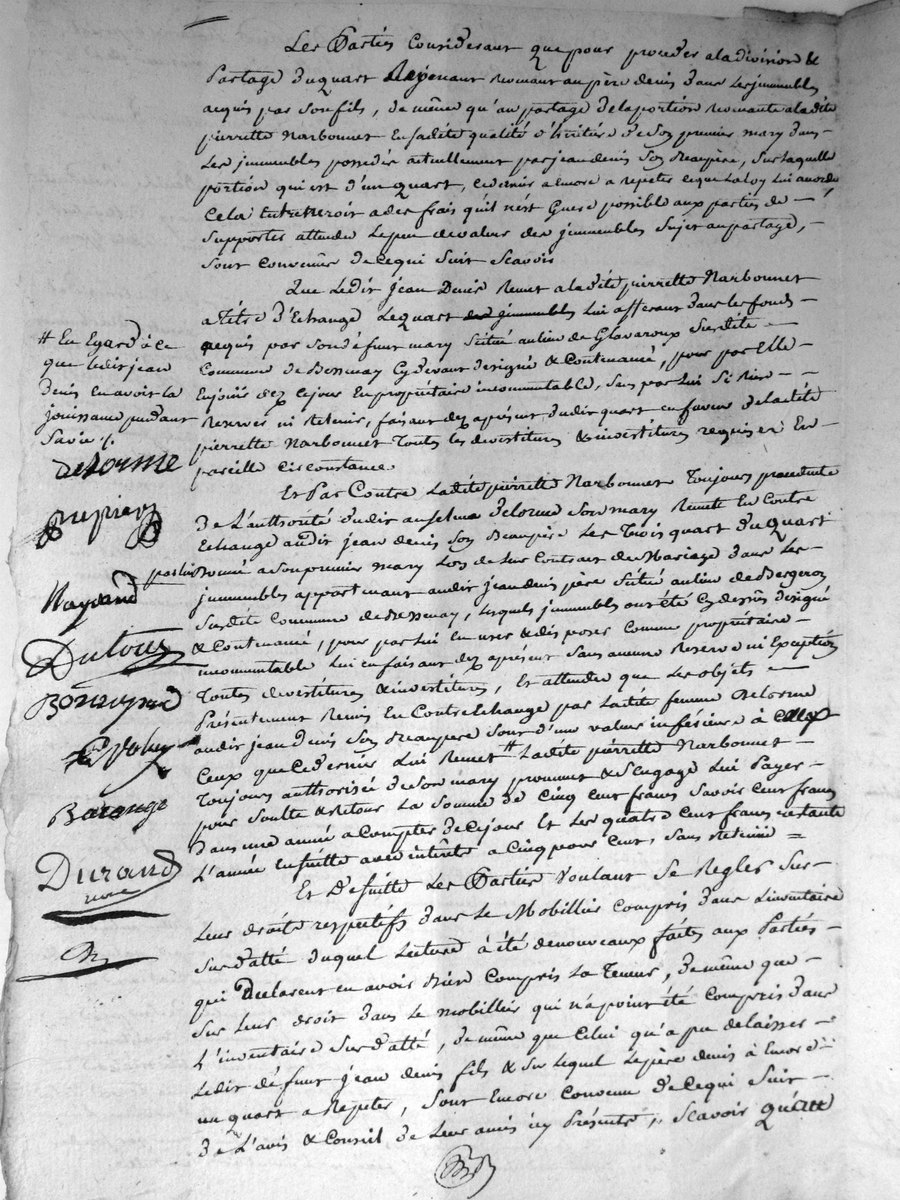 Les Parties Considerant que pour proceder a la division &
Partage du quart Revenant au père denis dans les immeubles
acquis par son fils, de même qu'au partage de la portion Revenante a la dite
pierrette Narbonnet En sa dite qualité d'héritière de son premier mary dans
Les immeubles possedés actuellement par jean denis son Beaupère, sur laquelle
portion qui est d'un quart, ce dernier a encore a repeter ce que la loy lui accorde
Cela Entreneroit a des frais qu'il n'est Guere possible aux parties de
Supporter attendu le peu de valeur des jmmeubles sujet au partage,
sont convenües de ce qui suit Scavoir
Que Ledit jean Denis Remet a la dite pierrette Narbonnet
a titre d'Echange Le quart des jmmeubles lui afferant dans les fonds
acquis par son défunt mary scitué au lieu de Glavaroux susdite
Commune de Bessenay cy devant designé & Contenancé, pour par Elle
En jouir dez ce jour En propriétaire incommutable, sans par lui si Rien
Reserver ni Retenir, faisant dez apresent dudit quart en faveur de la dite
pierrette Narbonnet toutes les devestitures & investitures requises En
pareille circonstance.
Et Par Contre La dite pierrette Narbonnet toujours procedante
de L'authorité dudit anselme delorme son mary Remet En Contre
Echange audit jean denis son Beaupère Les trois quart du quart
Donné a son premier mary Lors de leur Contrat de Mariage dans Les
jmmeubles appartenant audit jean denis père scitué au lieu de Bergeron
Susdite Commune de Bessenay, lesquels jmmeubles ont été cy dessus designé
& Contenancé, pour par lui en user & disposer comme propriétaire
incommutable Lui en faisant dez apresent sans aucune Reserve ni Exception
toutes devestitures & investitures, Et attendu que les objets
Présentement Remis En Contrechange par la dite femme Delorme
audit jean Denis son Beaupere sont d'une valeur inferieure à
Ceux que ce dernier lui Remet # La dite pierrette Narbonnet
toujours authorisée de son mary promet & s'Engage Lui Payer
pour soulte & Retour La somme de Cinq cent francs savoir cent francs
dans une année a Compter de ce jour Et les quatre cent francs restants
L'année ensuitte avec interêts a cinq pour cent, sans retenüe =
Et D'esuitte Les Parties voulant se Regler sur
Leur droits respectifs dans le Mobillier compris dans l'inventaire
Sus datté duquel Lecture à été de nouveaux faites aux Parties
qui Déclarent en avoir bien compris La Teneur, de même que
Sur leur droit dans le mobillier qui n'a point été compris dans
L'inventaire sus datté, de même que celui qu'a pu delaisser
Ledit défunt jean denis fils & sur lequel le père denis à Encore
un quart a Repeter, sont Encore convenu de ce qui suit
de L'avis & Conseil de leur amis icy Présents, Scavoir
# En Egard à ce
que ledit jean
denis en avoit la
jouissance pendant
sa vie /.
Delorme
Mayoud
Dutour
Baronge
Durand